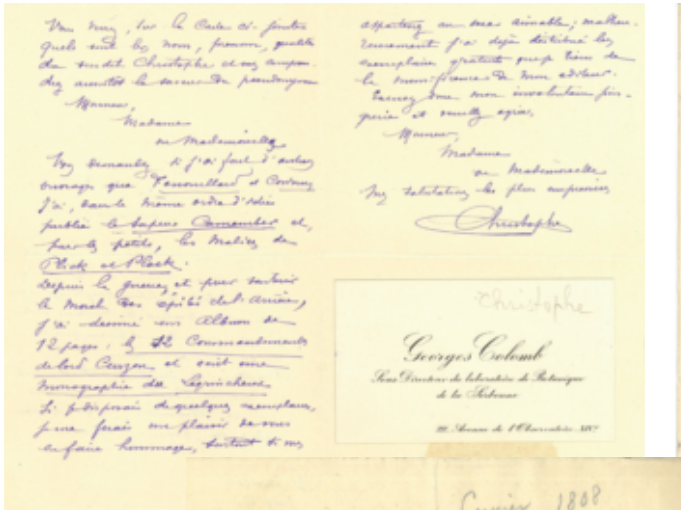 Vous verrez, sur la Carte ci-jointe
quels sont les nom, prénom, qualité
du susdit Christophe et vous compren-
drez aussitôt la saveur du pseudonyme
Monsieur,
Madame
ou Mademoiselle
Vous demandez si j'ai fait d'autres
ouvrages que Fenouillard et Cosinus
J'ai, dans le même ordre d'idées
publié le Sapeur Camember et,
pour les petits, les Malices de
Plick et Plock.
Depuis la guerre, et pour soutenir
le Moral des de l'Arrière,
j'ai dessiné un Album de
12 pages: les 12 Commandements
de lord Curzon et écrit une
Monographie du
Si je disposais de quelques exemplaires,
je me ferais un plaisir de vous
en faire hommage, surtout si vous
appartenez au sexe aimable; malheu-
reusement j'ai déjà distribué les
exemplaires gratuits que je tiens de
la munificence de mon éditeur.
Excusez donc mon involontaire
et veuillez agréer,
Monsieur,
Madame
ou Mademoiselle
mes salutations les plus empressées
Christophe
Christophe
Georges Colomb
Sous Directeur du laboratoire de Botanique
de la Sorbonne
Avenue de l'Observatoire XIV
1808